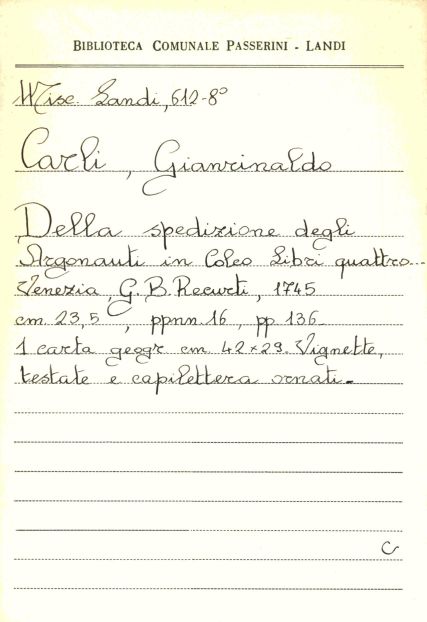 BIBLIOTECA COMUNALE PASSERINI - LANDI
Misc. Landi, 612-8°
Carli, Gianrinaldo
Della spedizione degli
Argonauti in Colco Libri quattro...
Venezia, G. B. Recurti, 1745
cm. 23,5, ppnn. 16, pp 136-
1 carta geogr cm 42 x 29. Vignette,
testate e capilettera ornati.-
C